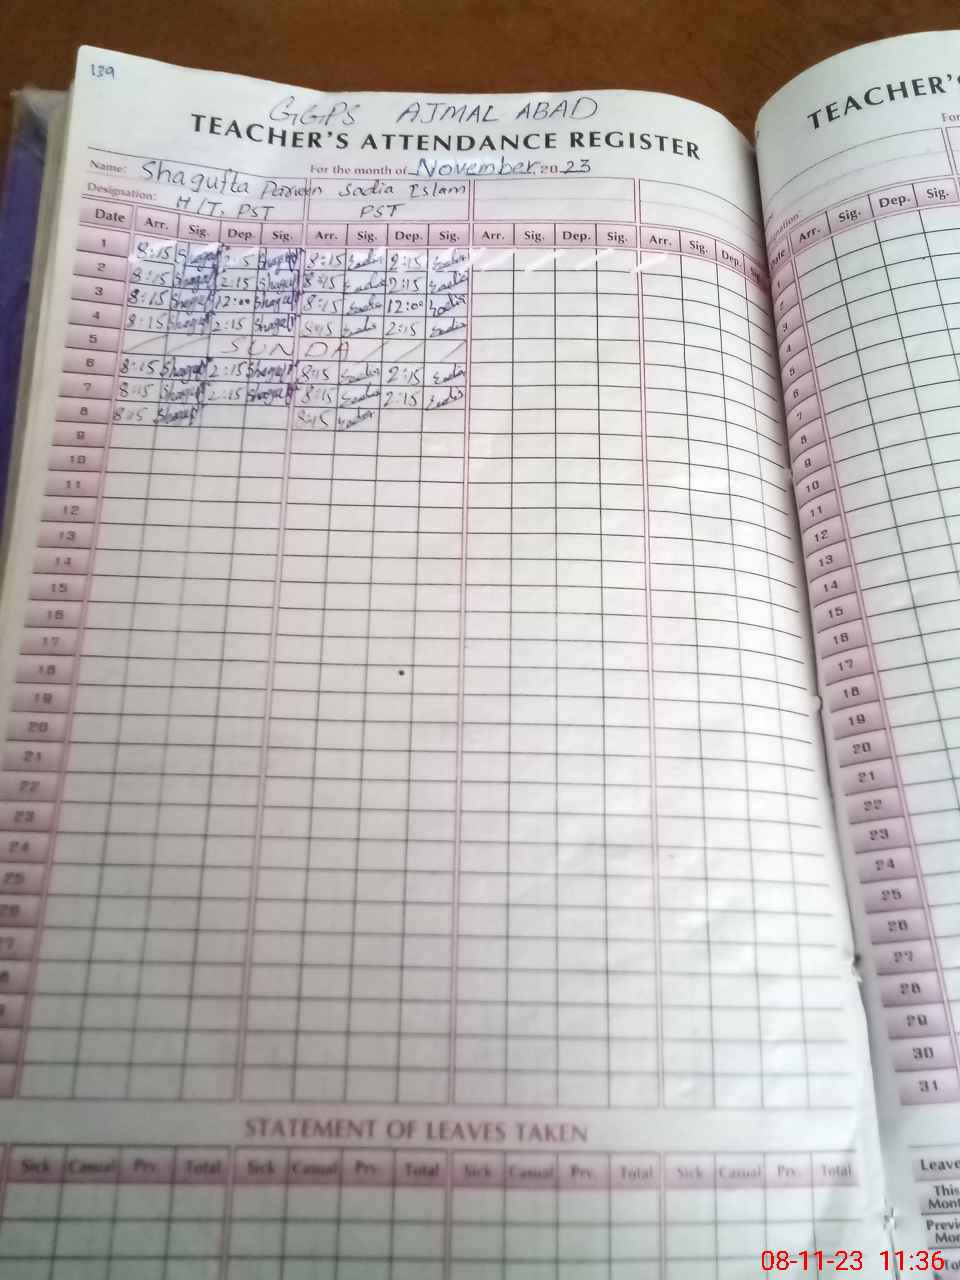 139
GGPS AJMAL ABAD
TEACHER'S ATTENDANCE REGISTER
Name: Shagufta Parveen For the month of November 2023
Sadia Islam
Designation: H/T, PST PST
Date Arr. Sig. Dep. Sig. Arr. Sig. Dep. Sig. Arr. Sig. Dep. Sig. Arr. Sig. Dep.
1 8:15 Shaguf 2:15 Shaguf 8:15 Sadia 2:15 Sadia
2 8:15 Shaguf 2:15 Shaguf 8:15 Sadia 2:15 Sadia
3 8:15 Shaguf 12:00 Shaguf 8:15 Sadia 12:00 Sadia
4 8:15 Shaguf 2:15 Shaguf 8:15 Sadia 2:15 Sadia
5 SUNDA
6 8:15 Shaguf 2:15 Shaguf 8:15 Sadia 2:15 Sadia
7 8:15 Shaguf 2:15 Shaguf 8:15 Sadia 2:15 Sadia
8 8:15 Shaguf 8:15 Sadia
9
10
11
12
13
14
15
16
17
18
19
20
21
22
23
24
25
STATEMENT OF LEAVES TAKEN
Sick Casual Prv. Total Sick Casual Prv. Total Sick Casual Prv. Total Sick Casual Prv. Total
TEACHER'S
Arr. Sig. Dep. Sig.
1
2
3
4
5
6
7
8
9
10
11
12
13
14
15
16
17
18
19
20
21
22
23
24
25
26
27
28
29
30
31
Leave
This
Mont
Previ
Mor
08-11-23 11:36